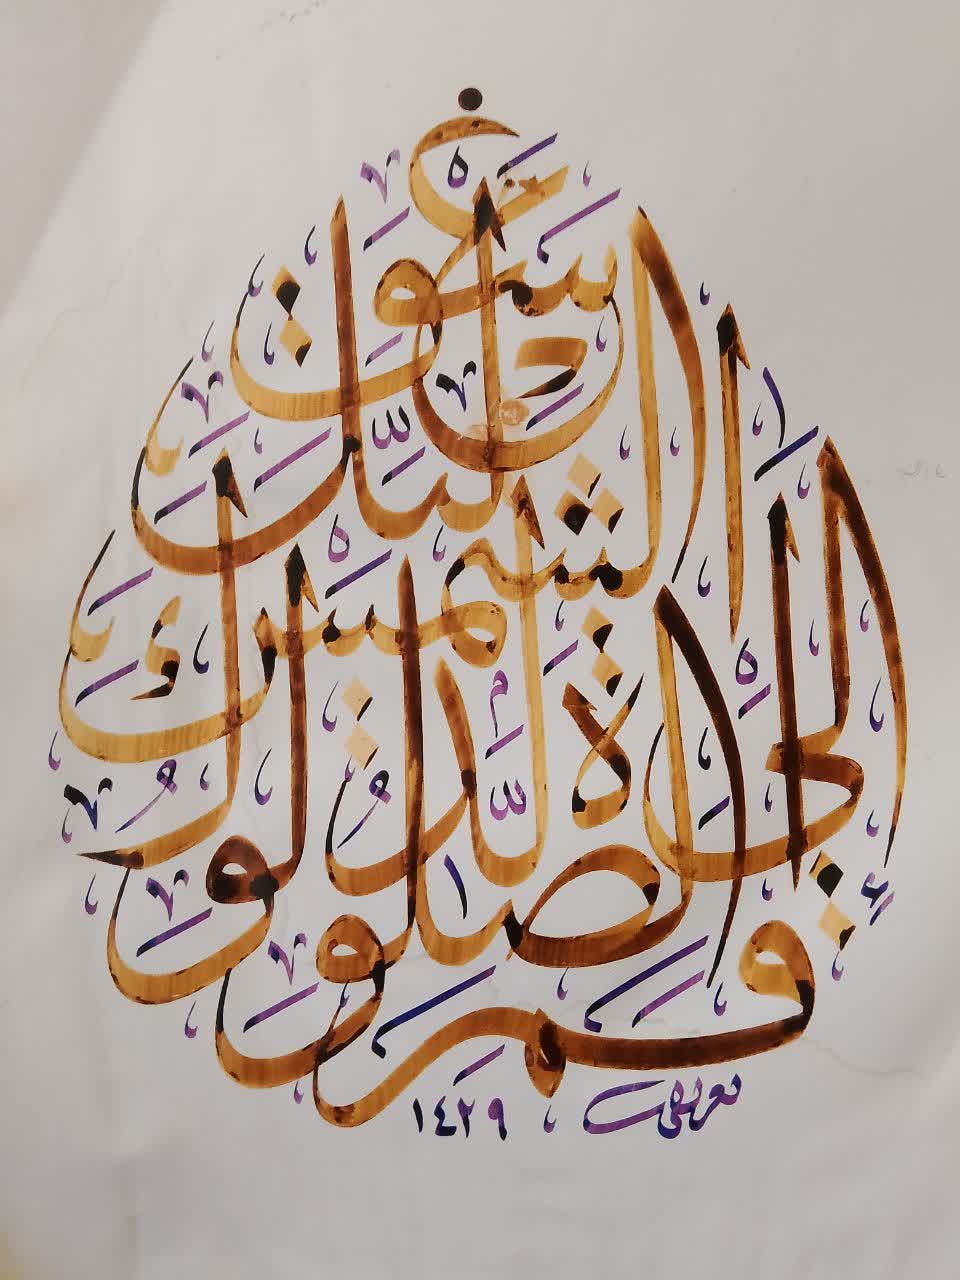 أَقِمِ الصَّلَوٰةَ لِدُلُوكِ الشَّمْسِ إِلَىٰ غَسَقِ اللَّيْلِ
١٤٢٩